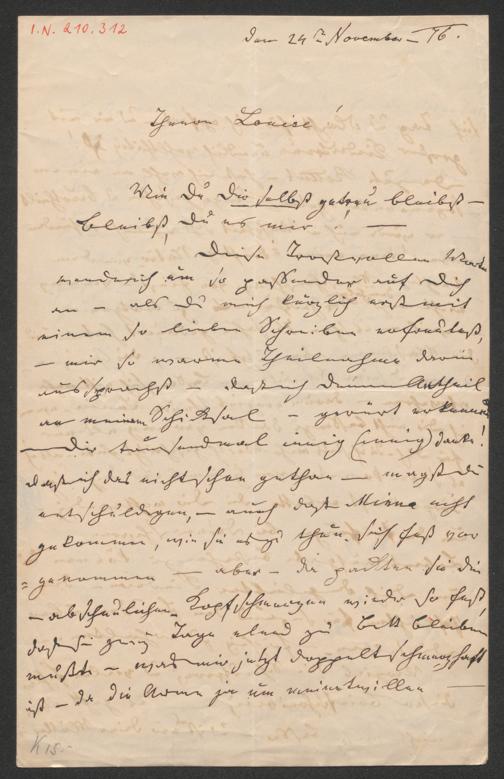 I.N. 210.312
den 24t November – 76.
Theure Louise!
Wie Du Dir selbst getreu bleibst –
bleibst, Du es mir! —
Diese Trostvollen Worte
wende ich um so passender auf Dich
an – als Du mich kürzlich erst mit
einem so lieben Schreiben erfreutest,
– mir so warme Theilnahme darin
aussprachst – daß ich Deinen Antheil
an meinem Schicksal – gerürt erkenne
– Dir tausendmal innig (innig) danke!
daß ich das nicht schon gethan – magst Du
entschuldigen, – auch daß Minna nicht
gekommen, wie sie es zu thun sich fest vor
= genommen – aber – da packten sie die
– abscheulichen Kopfschmerzen wieder so fest,
daß sie Tage elend zu Bett bleiben
mußte – was mir jetzt doppelt schmerzhaft
ist – da die Arme ja um meinetwillen —
K 15.–